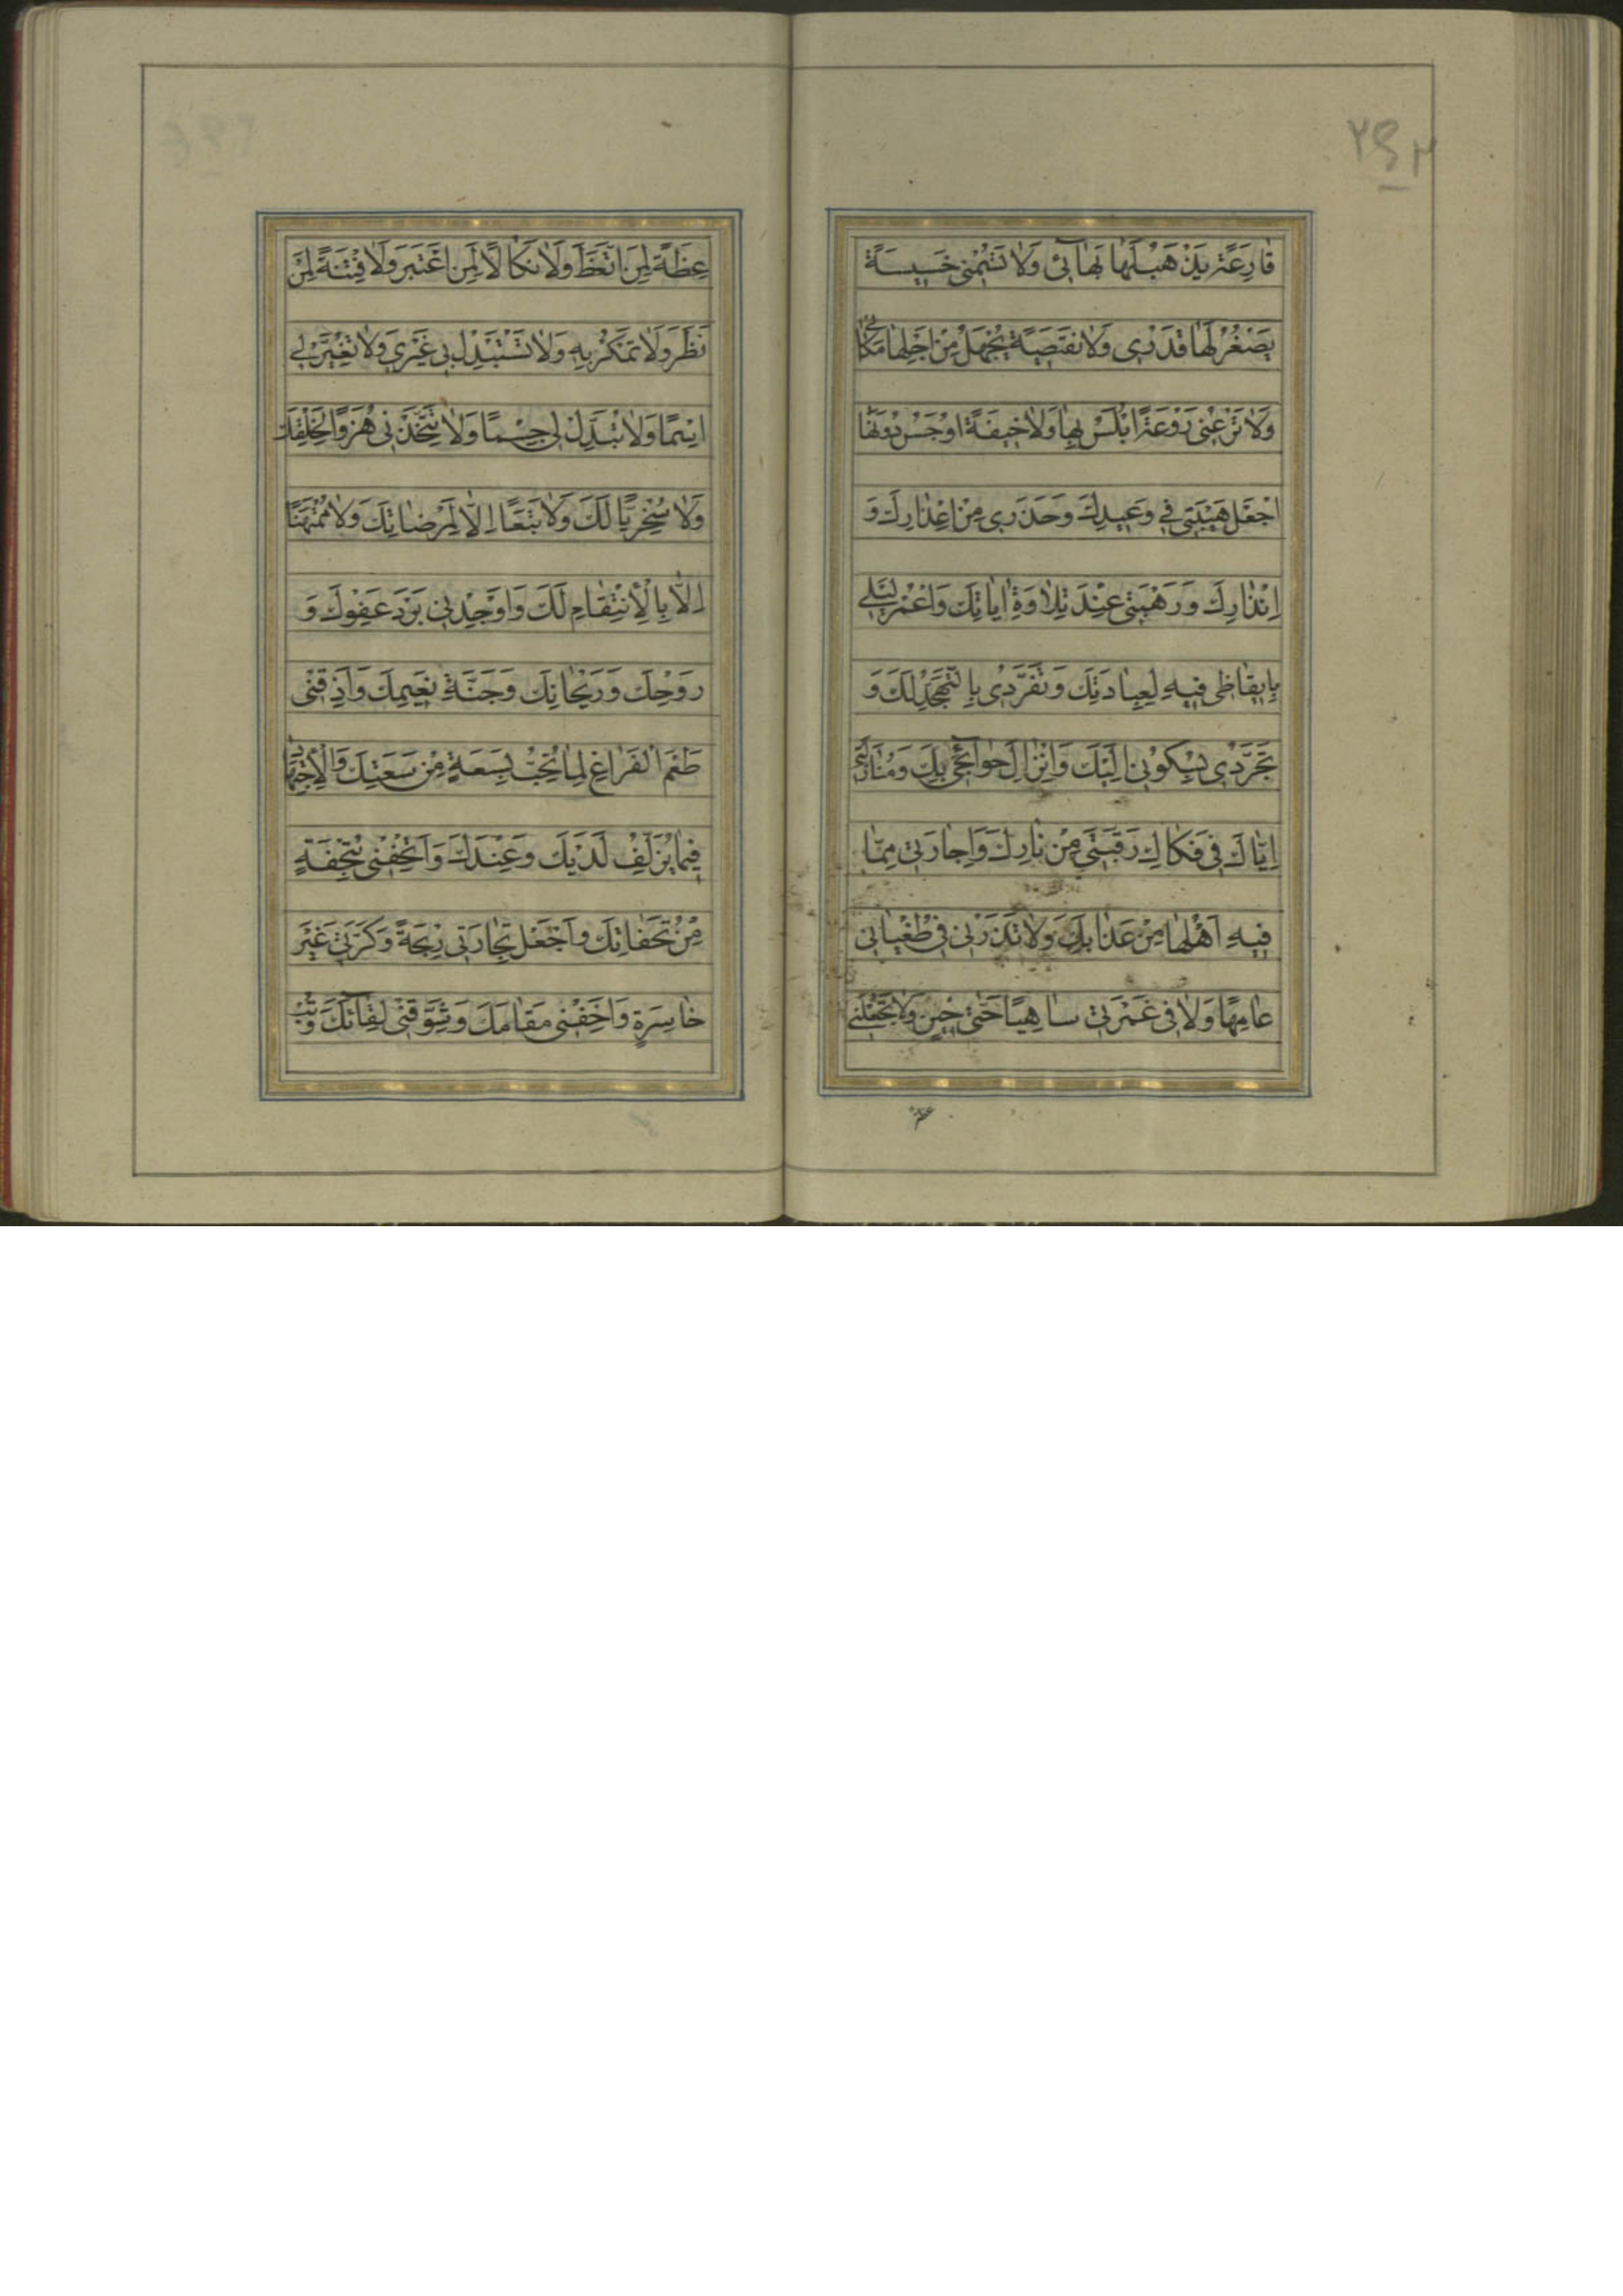 قارِعَةً يَذْهَبُ لَها بَهآئى وَلا تَسُمْنى خَسيسَةً
يَصْغُرُ لَها قَدْرى وَلا نَقيصَةً يُجْهَلُ مِنْ اَجْلِها مَكانى
وَلا تَرُعْنى رَوْعَةً اُبْلَسُ بِها وَلا خيفَةً اوُجَسُ دوُنَها
اجْعَلْ هَيْبَتى فى وَعيدِكَ وَحَذَرى مِنْ اِعْذارِكَ وَ
اِنْذارِكَ وَرَهْبَتى عِنْدَ تِلاوَةِ اياتِكَ وَاعْمُرْ لَيْلى
بِايقاظى فيهِ لِعِبادَتِكَ وَتَفَرُّدى بِالتَّهَجُّدِ لَكَ وَ
تَجَرُّدى بِسُكُونى اِلَيْكَ وَاِنْزالِ حَوآئِجى بِكَ وَمُنازَلَتى
اِيّاكَ فى فَكاكِ رَقَبَتى مِنْ نارِكَ وَاِجارَتى مِمّا
فيهِ اَهْلُها مِنْ عَذابِكَ وَلا تَذَرْنى فى طُغْيانى
عامِهًا وَلا فى غَمْرَتى ساهِيًا حَتّى حينٍ وَلا تَجْعَلْنى
عِظَةً لِمَنِ اتَّعَظَ وَلا نَكالًا لِمَنِ اعْتَبَرَ وَلا فِتْنَةً لِمَنْ
نَظَرَ وَلا تَمْكُرْ بيهِ وَلا تَسْتَبْدِلْ بى غَيْرى وَلا تُغَيِّرْ لى
اسْمًا وَلا تُبَدِّلْ لى جِسْمًا وَلا تَتَّخِذْنى هُزُوًا لِخَلْقِكَ
وَلا سُخْرِيًّا لَكَ وَلا تَبَعًا اِلّا لِمَرْضاتِكَ وَلا مُمْتَهَنًا
اِلّا بِالْاِنْتِقامِ لَكَ وَاَوْجِدْنى بَرْدَ عَفْوِكَ وَ
رَوْحِكَ وَرَيْحانِكَ وَجَنَّةِ نَعيمِكَ وَاَذِقْنى
طَعْمَ الْفَراغِ لِما تُحِبُّ بِسَعَةٍ مِنْ سَعَتِكَ وَالْاِجْتِهادِ
فيما يُزْلِفُ لَدَيْكَ وَعِنْدَكَ وَاَتْحِفْنى بِتُحْفَةٍ
مِنْ تُحَفاتِكَ وَاجْعَلْ تِجارَتى رِبْحَةً وَكَرَّتى غَيْرَ
خاسِرَةٍ وَاَخِفْنى مَقامَكَ وَشَوِّقْنى لِقآئَكَ وَتُبْ